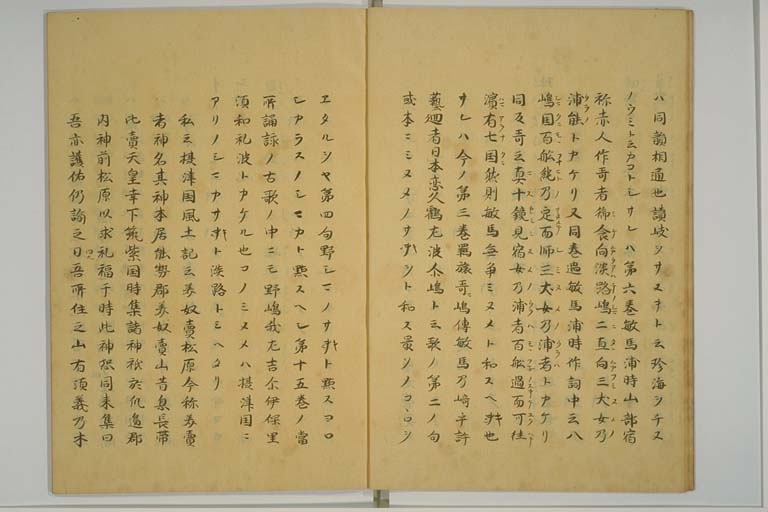 ハ同韻相通也讃岐ヲサヌキト云珍海ヲチヌ
ノウミト云カコトシサレハ第六巻敏馬浦時山部宿
祢赤人作哥者御食向淡路嶋二直向三犬女乃
浦能トカケリ又同巻過敏馬浦時作詞中云八
嶋国百舩純乃定而師三犬女乃浦者トカケリ
同反哥云真十鏡見宿女乃浦者百舩過而可徃
濱有七国
サレハ今ノ第三巻羇旅哥嶋傳敏馬乃崎乎許
藝廻者日本恋久鶴左波尓嶋ト云歌ノ第二ノ句
或本ニミヌメノサキヲト和ス最
ヱタルヲヤ第四句野シマノサキト點スヨロ
シカラスノシマカト點スヘシ第十五巻ノ當
所誦詠ノ古歌ノ中ニモ野嶋我左吉尓伊保里
須和礼波トカケル也コノミヌメハ摂津国ニ
アリノシマカサキト淡路トミヘタリ
私云摂津国風土記云美奴賣松原今称美奴賣
者神名其神本居能勢郡美奴賣山昔息長帯
比賣天皇幸下筑紫国時集諸神祇於
内神前松原以求礼福于時此神
吾亦護佑仍諭之曰吾所住之山有須義乃木